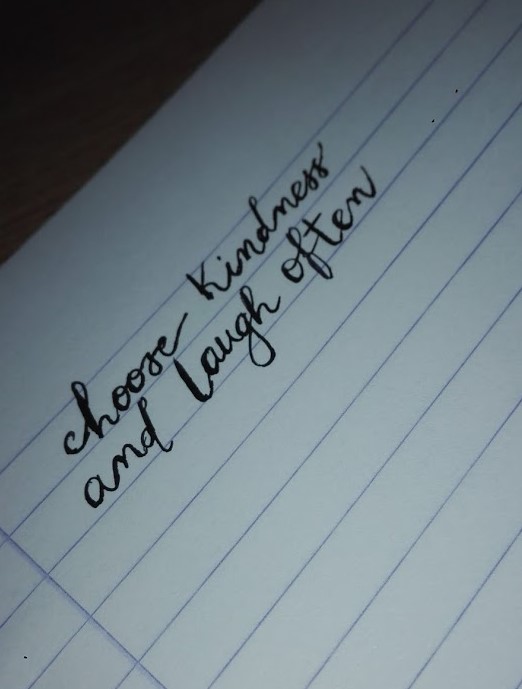 choose kindness
and laugh often